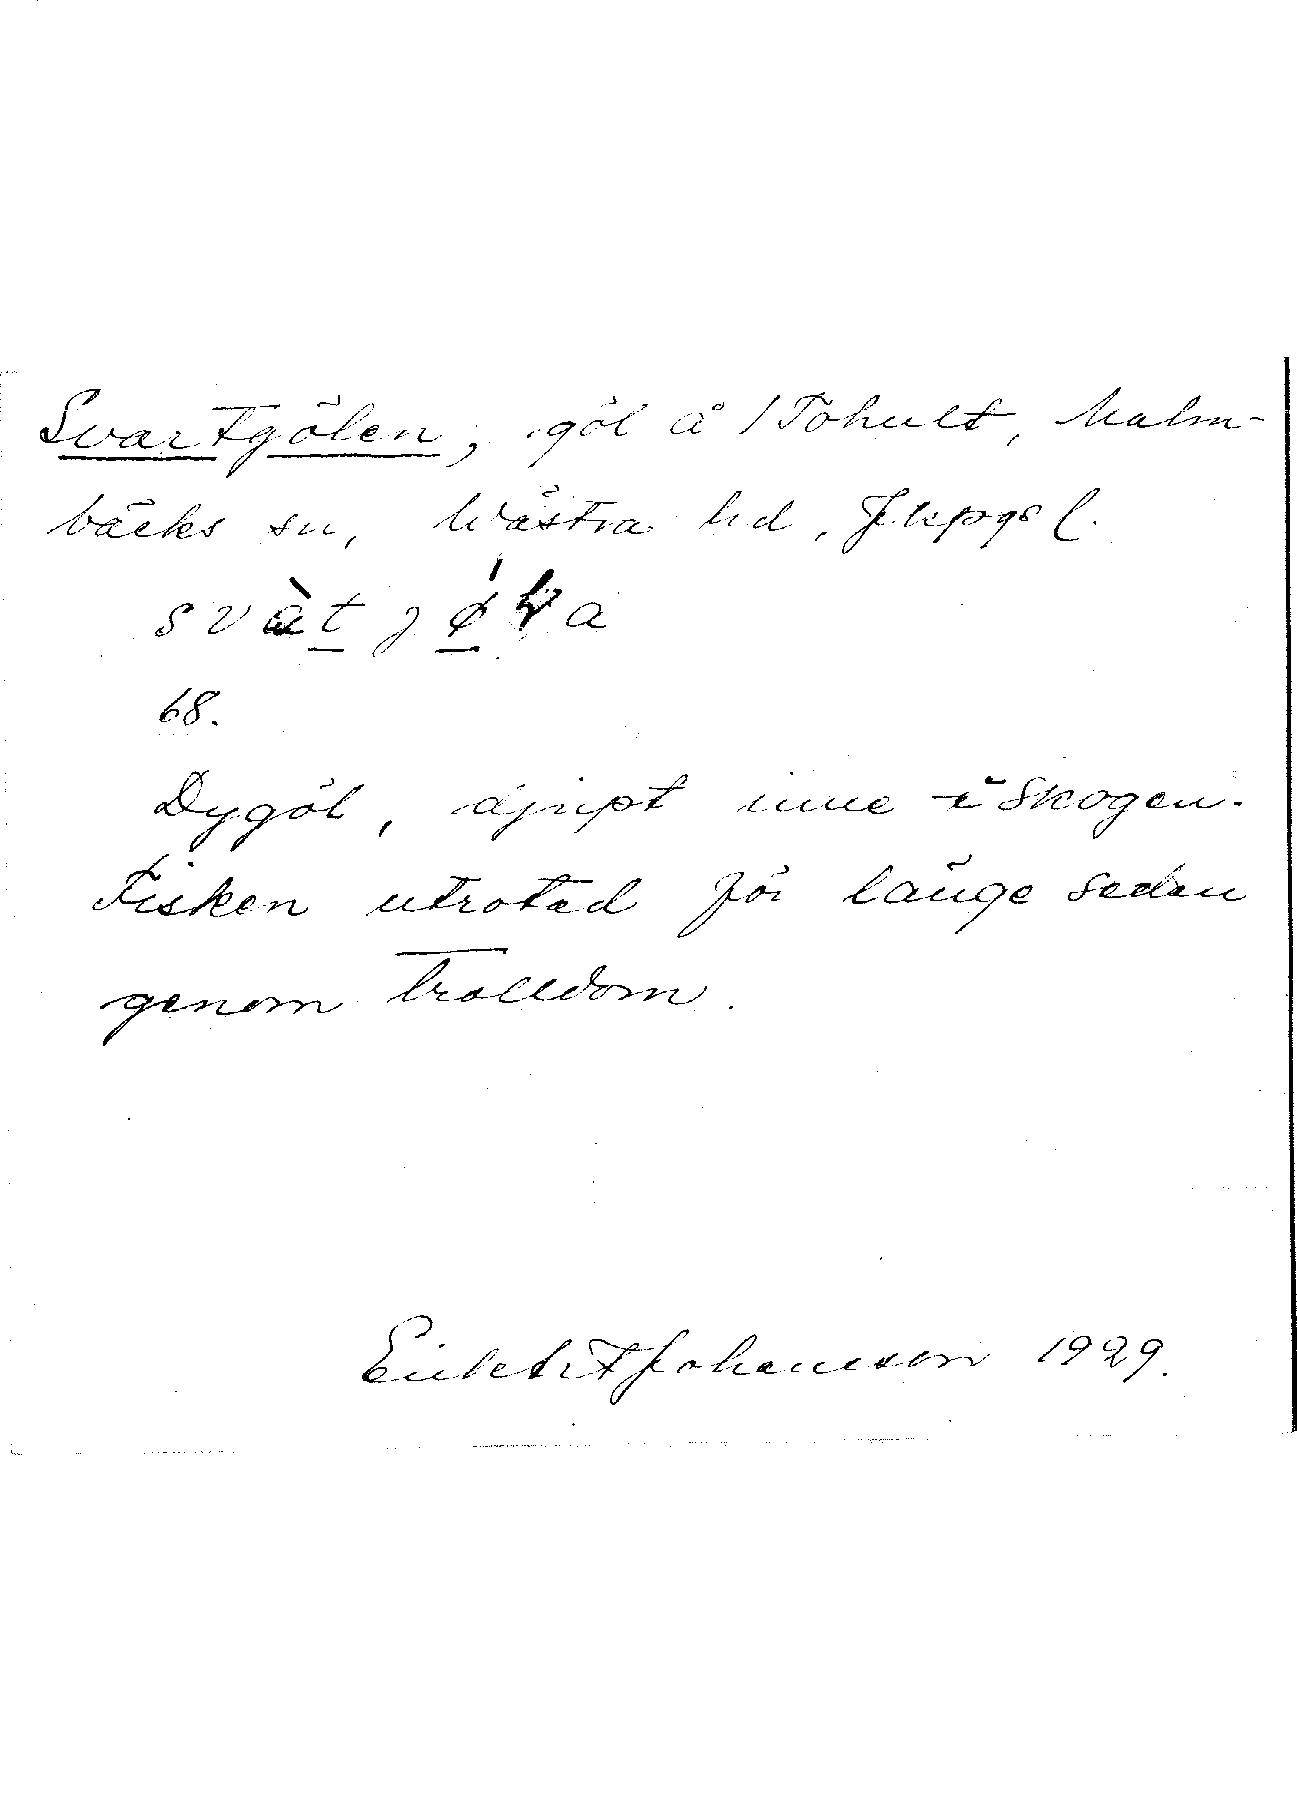 Svartgölen, göl å /Tohult, Malm-
bäcks sn, Västra hd, Jkpgs l.
svàt jø̍ɫa
68.
Dygöl, djupt inne i skogen.
Fisken utrotad för länge sedan
genom trolldom.
Johansson 1929.